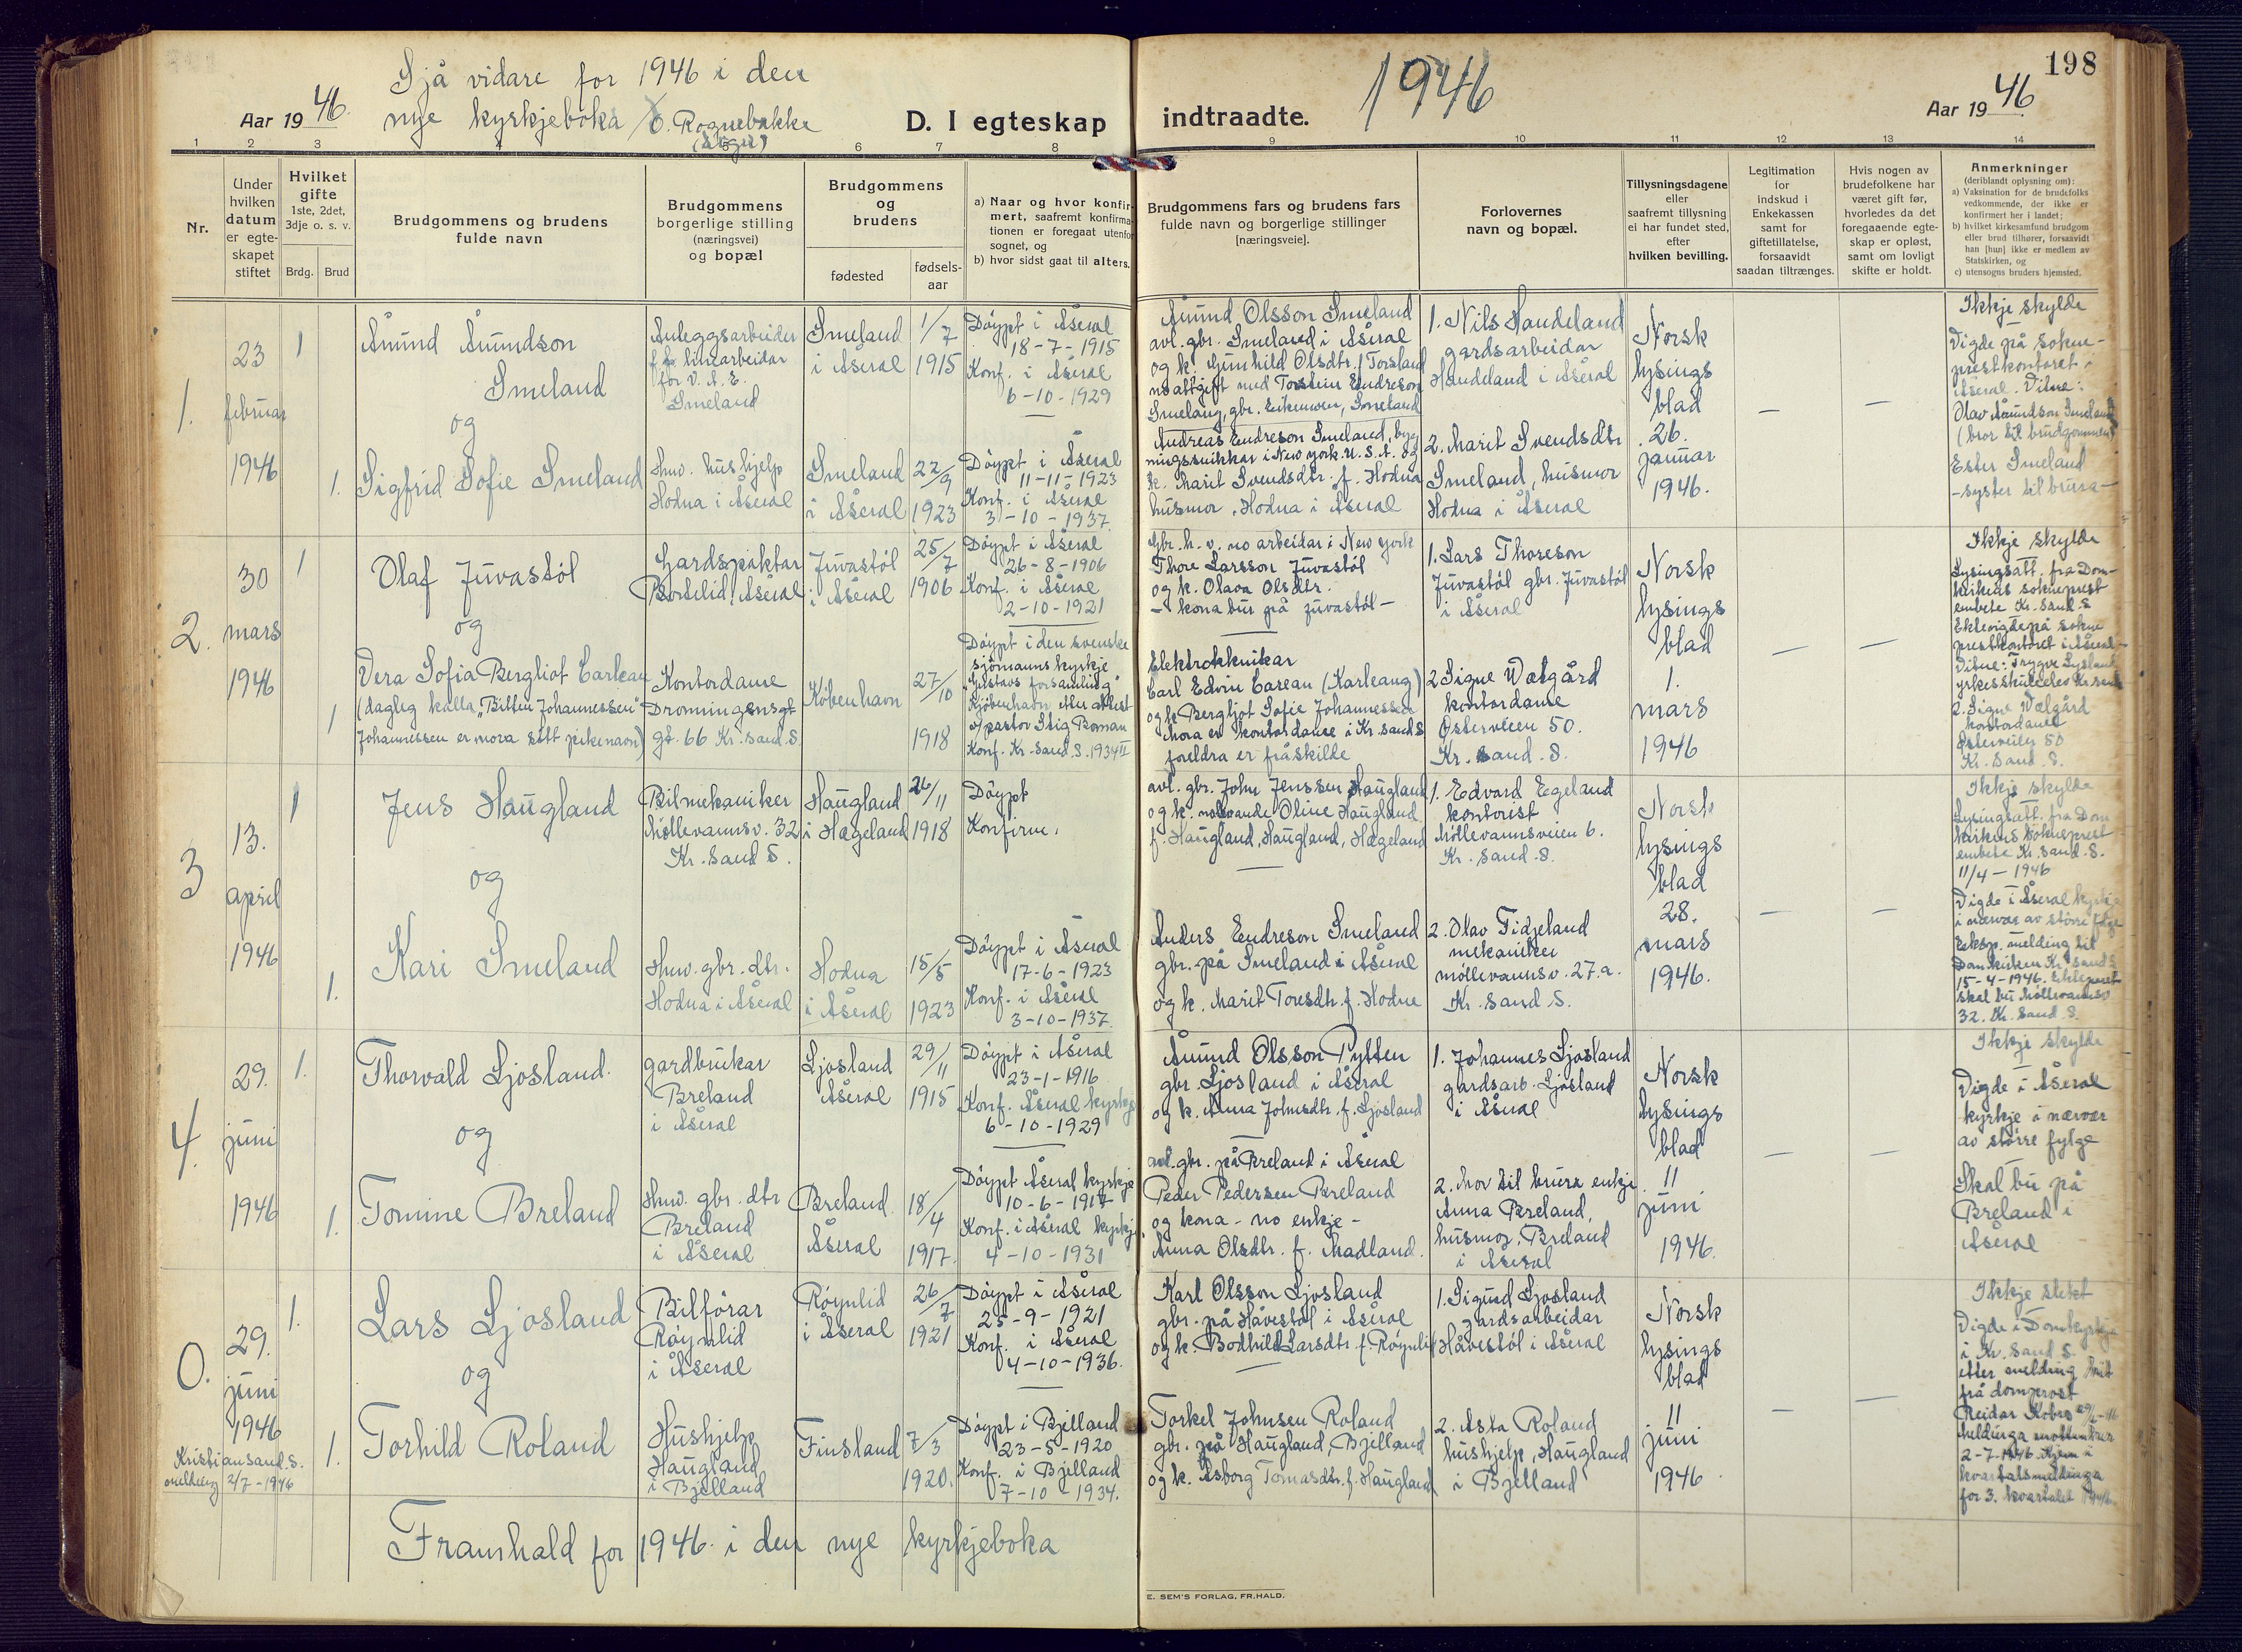 198
Sjå vidare for 1946 i den
nye kyrkjeboka O. Rognebakke
(sign)
1946
Aar 1946.
D. I egteskap indtraadte.
Aar 1946.
1 2 3 6 7 8 9 10 11 12 13 14
Nr.
Under hvilken datum er egteskapet stiftet
Hvilket gifte
1ste, 2det, 3dje o. s. v.
Brdg. Brud
Brudgommens og brudens
fulde navn
Brudgommens
borgerlige stilling
(næringsvei)
og bopæl
Brudgommens
og
brudens
fødested
fødsels-
aar
a) Naar og hvor konfir-
mert, saafremt konfirma-
tionen er foregaat utenfor
sognet, og
b) hvor sidst gaat til alters.
Brudgommens fars og brudens fars
fulde navn og borgerlige stillinger
[næringsveie].
Forlovernes
navn og bopæl.
Tillysningsdagene
eller
saafremt tillysning
ei har fundet sted,
efter
hvilken bevilling.
Legitimation
for
indskud i
Enkekassen
samt for
giftetillatelse,
forsaavidt
saadan tiltrænges.
Hvis nogen av
brudefolkene har
været gift før,
hvorledes da det
foregaaende egte-
skap er opløst,
samt om lovligt
skifte er holdt.
Anmerkninger
(deriblandt oplysning om):
a) Vaksination for de brudefolks
vedkommende, der ikke er
konfirmert her i landet;
b) hvilket kirkesamfund brudgom
eller brud tilhører, forsaavidt
han [hun] ikke er medlem av
Statskirken, og
c) utensogns bruders hjemsted.
1.
23
februar
1946
1
Åmund Åmundson
Smeland
og
1.
Sigfrid Sofie Smeland
Anleggsarbeider
linearbeidar
for V. A. E.
Smeland
Smeland
i Åseral
1/7
1915
Døypt i Åseral
18-7-1915
Konf. i Åseral
6-10-1929
Huw. hushjelp
Hodna i Åseral
Smeland
i Åseral
22/9
1923
Døypt i Åseral
11-11-1923
Konf. i Åseral
3-10-1937
Åmund Olsson Smeland
avl. gbr. Smeland i Åseral
og k. Gunhild Olsdtr. f. Torsland
no attgift med Torstein Eendreson
Andreas Eendreson Smeland, byg
ningssnikkar i New York. U.S.A. og
k. Marit Svendsdtr. f. Hodna
husmor, Hodna i Åseral
1. Nils Haudeland
gardsarbeidar
Haudeland i Åseral
2. Marit Svendsdtr
Smeland, husmor
Hodna i Åseral
Norsk
lysings
blad
26.
januar
1946.
Ikkje skylde
Vigde på sokne-
prestkontoret i
Åseral. Vitne:
Olav Åmundson Smeland
(bror til brudgommen)
Ester Smeland
-syster til brura-
2.
30
mars
1946
1
Olaf Juvastøl
og
1
Vera Sofia Bergliot Carleau
(dagleg kalla "Bitten Johannessen"
Johannessen er mora sitt pikenavn)
Gardspaktar
Bortelid, Åseral
Juvastøl
i Åseral
25/7
1906
Døypt i Åseral
26-8-1906
Konf. i Åseral
2-10-1921
Kontordame
Dronningensgt
gt. 66 Kr. sand. S.
København
27/10
1918
Døypt i den svenske
sjømannskyrkje
"Gustavs forsamling"
Kjøbenhavn etter attest
av pastor Stig Roman
Konf. Kr. sand. S. 1934 II
Gbr. h. v. no arbeidar i New York
Thore Larsson Juvastøl
og k. Olava Olsdtr.
- kona bur på Juvastøl -
Elektroteknikar
Carl Edvin Careau (Karleang)
og k. Bergljot Sofie Johannessen
Mora er kontordame i Kr. sand S
foreldra er fråskilde
1. Lars Thoreson
Juvastøl gbr. Juvastøl
i Åseral
2 Signe Walgård
kontordame
Østerveien 50.
Kr. sand. S.
Norsk
lysings
blad
1.
mars
1946
Ikkje skylde
Lysingsatt. fra Dom-
kirkens sokneprest
embete Kr. sand. S
Ektevigde på sokne
prestkontoret i Åseral-
Vitne: Trygve Lysland
yrkesskuleelev Kr. sand
2. Signe Walgård
kontordame
Østerveien 50
Kr. sand. S.
3
13.
april
1946
1
Jens Haugland
og
1.
Kari Smeland
Bilmekaniker
Møllevannsv. 32
Kr. sand S.
Haugland
i Hægeland
26/11
1918
Døypt
Konfirm.
Huw. gbr. dtr.
Hodna i Åseral
Hodna
i Åseral
15/5
1923
Døypt i Åseral
17-6-1923
Konf. i Åseral
3-10-1937.
avl. gbr. John Jenssen Haugland
og k. Oline Haugland
f. Haugland, Haugland, Hægeland
Anders Eendreson Smeland
gbr. på Smeland i Åseral
og k. Marit Toresdtr. f. Hodne
1. Edvard Egeland
kontorist
Møllevannsveien 6.
Kr. sand. S.
2. Olav Fidjeland
mekaniker
møllevannsv. 27.a.
Kr. sand S.
Norsk
lysings
blad
28.
mars
1946.
Ikkje skylde
Lysingsatt. fra Dom
kirkens sokneprest
embete Kr. sand. S.
11/4 - 1946
Vigde i Åseral kyrkje
i nærvær av større følge
Eksp. melding til
Domkirken Kr. sand S
15-4-1946. Ekteparet
skal bu Møllevannsv
32. Kr. sand. S.
4.
29.
juni
1946
1.
Thorvald Ljosland.
og
1.
Tomine Breland
gardbrukar
Breland
i Åseral
Ljosland
Åseral
29/11
1915
Døypt i Åseral
23-1-1916
Konf. Åseral kyrkje
6-10-1929
Huw. gbr. dtr
Breland
i Åseral
Breland.
Åseral
18/4
1917.
Døypt Åseral kyrkje
10-6-1917
Konf. i Åseral kyrkje
4-10-1931
Åmund Olsson Pytten
gbr. Ljosland i Åseral
og k. Anna Johnsdtr. f. Ljosland
avl. gbr. på Breland i Åseral
Peder Pedersen Breland
og kona - no enkje -
Anna Olsdtr. f. Madland.
1. Johannes Ljosland
gardsarb. Ljosland
i Åseral
2. Mor til brura enkje
Anna Breland,
husmor, Breland
i Åseral
Norsk
lysings
blad
11
juni
1946.
Ikkje skylde
Vigde i Åseral
kyrkje i nærvær
av større fylge
Skal bu på
Breland i
Åseral
0.
29.
juni
1946
Kristiansand. S.
melding 2/7-1946
1.
Lars Ljosland
og
1.
Torhild Roland
Bilførar
Røynlid
i Åseral
Røynlid
i Åseral
26/7
1921
Døypt i Åseral
25-9-1921
Konf. i Åseral
4-10-1936.
Hushjelp
Haugland
i Bjelland
Finsland
7/3
1920.
Døypt i Bjelland
23-5-1920
Konf. i Bjelland
7-10-1934.
Karl Olsson Ljosland
gbr. på Håvestøl i Åseral
og k. Bodhild Larsdtr. f. Røynlid
Torkel Johnsen Roland
gbr. på Haugland, Bjelland
og k. Åsborg Tomasdtr. f. Haugland
1. Sigurd Ljosland
gardsarbeidar
Håvestøl i Åseral
2. Asta Roland
hushjelp, Haugland
i Bjelland
Norsk
lysings
blad
11
juni
1946
Ikkje slekt
Vigde i Domkyrkja
i Kr. sand S.
etter melding hit
frå domprost
Reidar Kobro 29/6-46
Meldinga
2-7-1946. Kjem i
kvartalsmeldinga
for 3. kvartalet 1946.
Framhald for 1946 i den nye kyrkjeboka
E. SEM'S FORLAG, FR.HALD.